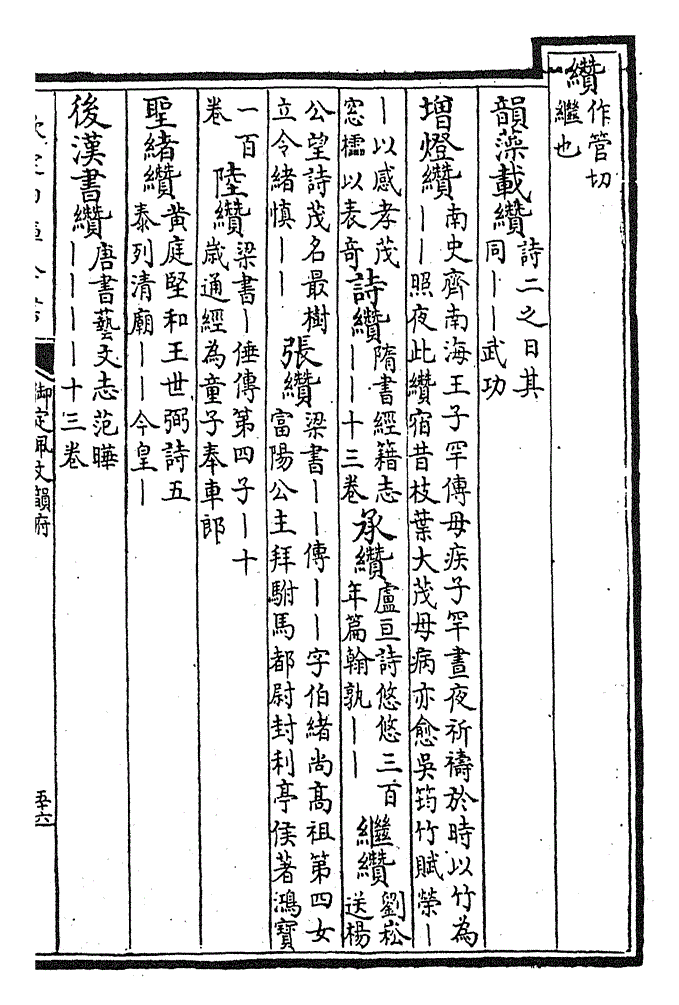 纘 作管切
繼也
韻藻載纘 詩二之日其
同丨丨武功
增燈纘 南史齊南海王子罕傳母疾子罕晝夜祈禱於時以竹為
丨丨照夜此纘宿昔枝葉大茂母病亦愈吳筠竹賦榮丨
丨以感孝茂
窓檽以表奇
詩纘 隋書經籍志
丨丨十三卷
承纘 盧亘詩悠悠三百
年篇翰孰丨丨
繼纘 劉崧
送楊
公望詩茂名最樹
立令緒慎丨丨
張纘 梁書丨丨傳丨丨字伯緒尚高祖第四女
富陽公主拜駙馬都尉封利亭侯著鴻寶
一百
卷
陸纘 梁書丨倕傳第四子丨十
歲通經為童子奉車郎
聖緒纘 黄庭堅和王世弼詩五
泰列清廟丨丨今皇丨
後漢書纘 唐書藝文志范曄
丨丨丨丨十三卷
御定佩文韻府